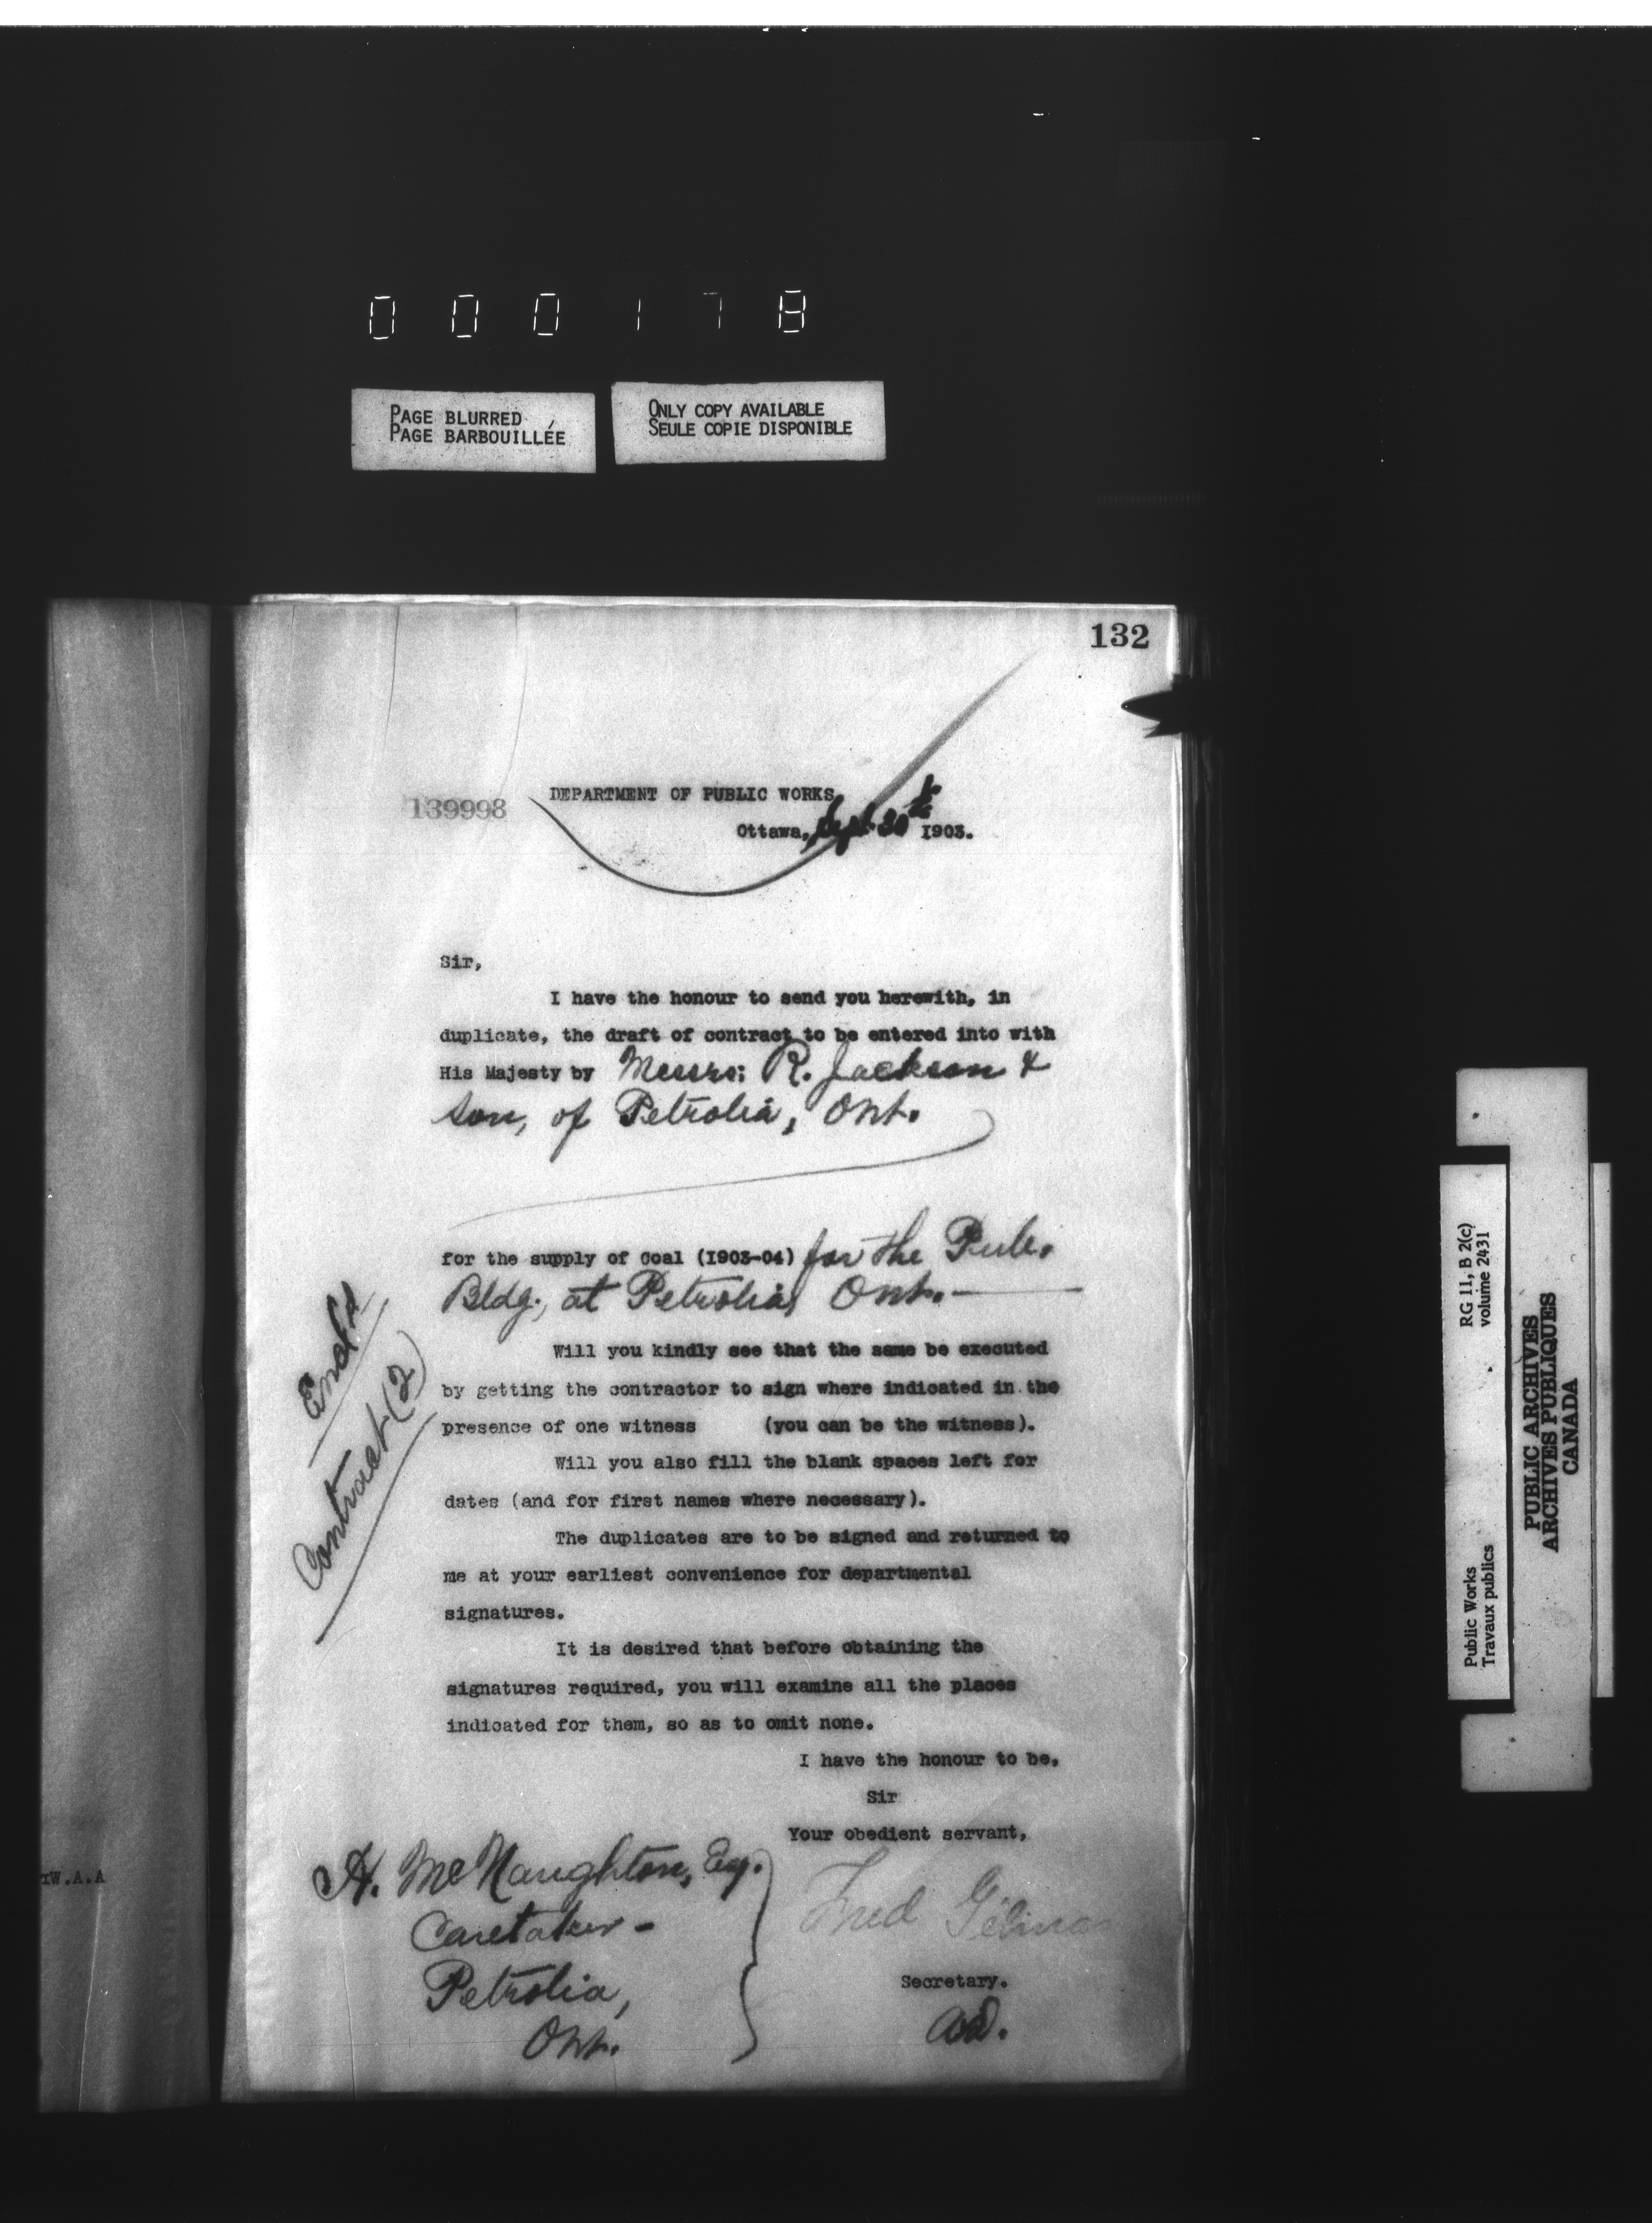 000178
PAGE BLURRED
PAGE BARBOUILLÉE
ONLY COPY AVAILABLE
SEULE COPIE DISPONIBLE
132
139998
DEPARTMENT OF PUBLIC WORKS
Ottawa, Sept. 30th 1903.
Sir,
I have the honour to send you herewith, in
duplicate, the draft of contract to be entered into with
His Majesty by Messrs: R. Jackson &
Son, of Petrolia, Ont.
for the supply of Coal (1903-04) for the Pub.
Bldg., at Petrolia, Ont.
Encl'd
Contract (2)
Will you kindly see that the same be executed
by getting the contractor to sign where indicated in the
presence of one witness (you can be the witness).
Will you also fill the blank spaces left for
dates (and for first names where necessary).
The duplicates are to be signed and returned to
me at your earliest convenience for departmental
signatures.
It is desired that before obtaining the
signatures required, you will examine all the places
indicated for them, so as to omit none.
I have the honour to be,
Sir
Your obedient servant,
Fred Gélinas
Secretary.
A. McNaughton, Esq.
Caretaker -
Petrolia,
Ont.
W.A.A
RG 11, B 2(c)
volume 2431
Public Works
Travaux publics
PUBLIC ARCHIVES
ARCHIVES PUBLIQUES
CANADA